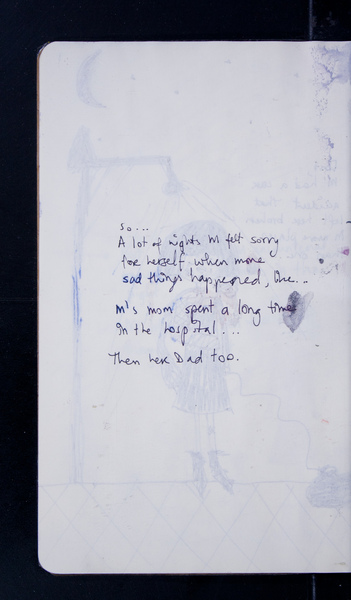 So...
A lot of nights M felt sorry
for herself when more
sad things happened, like...
M's mom spent a long time
in the hospital....
Then her Dad too.